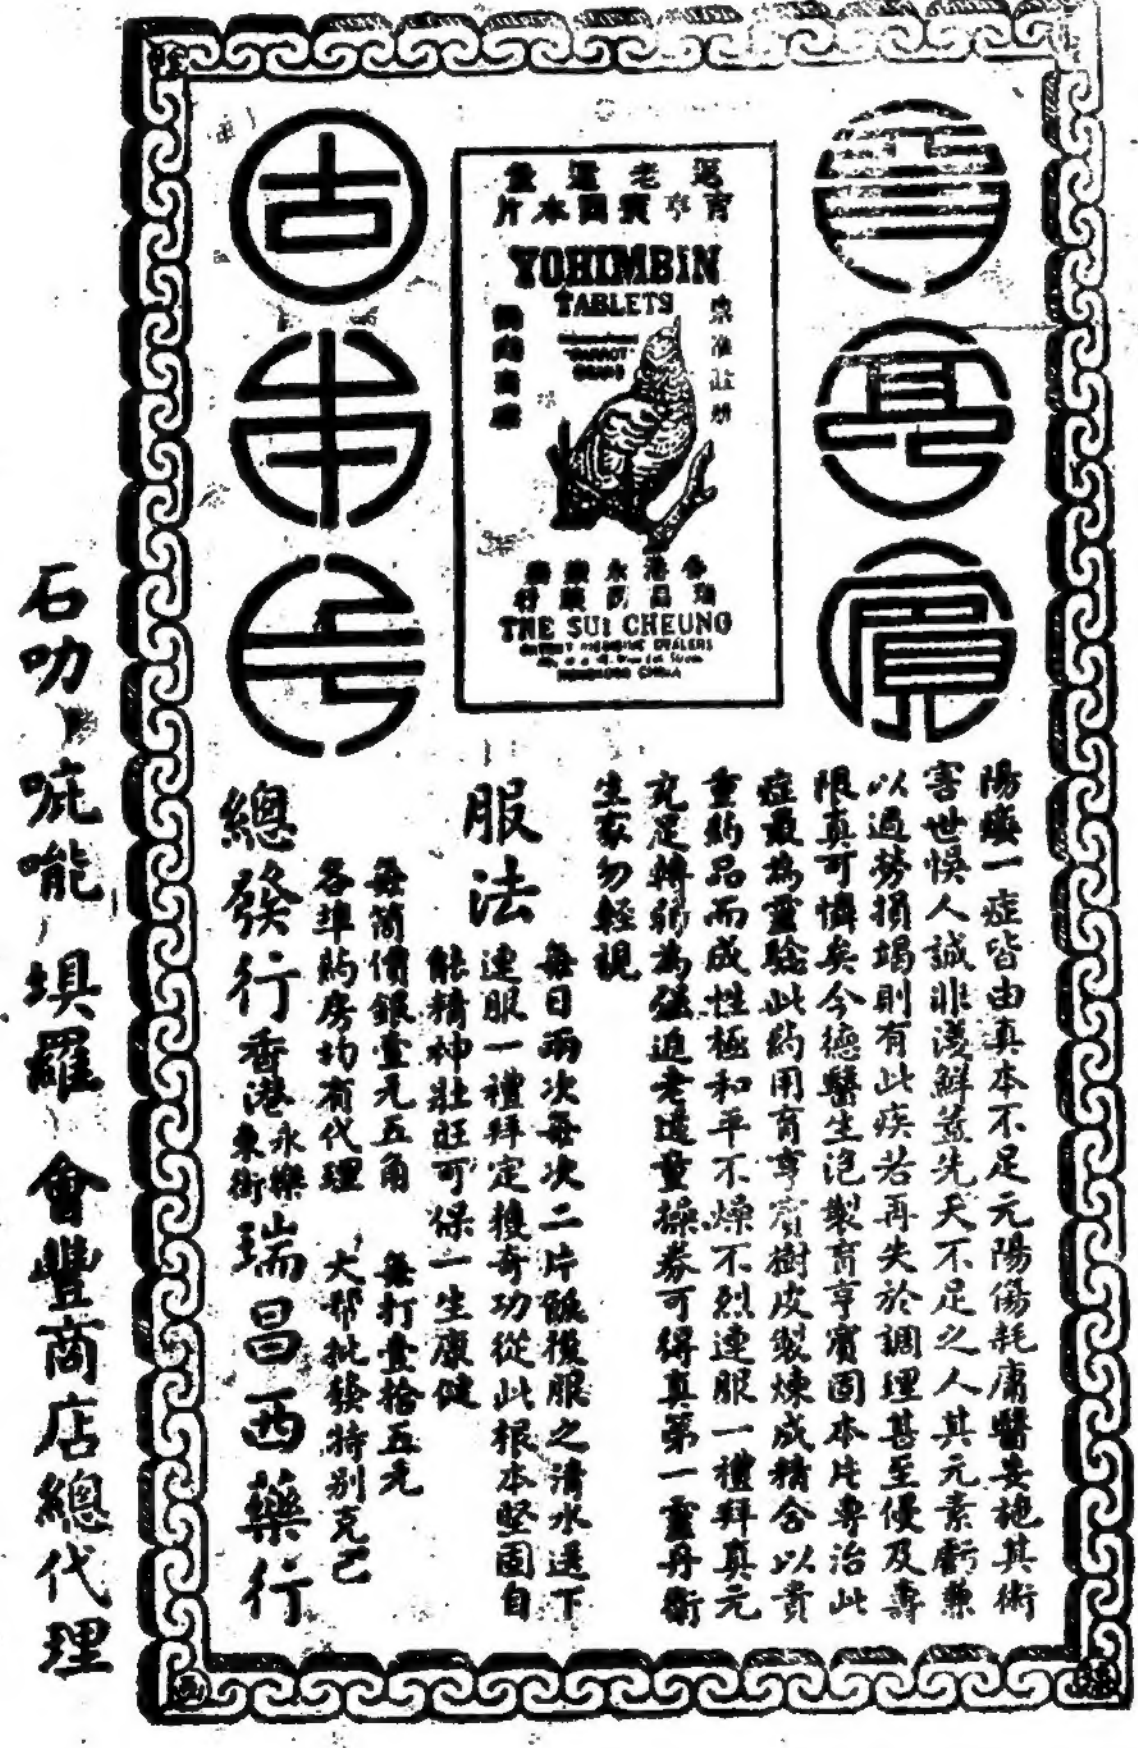 育亨賓
固本片
返老還童
育亨賓固本片
YOHIMBIN
TABLETS
禀准註册
"PARROT"
瑞昌西藥行
THE SUI CHEUNG
PATENT MEDICINE DEALERS
HONGKONG CHINA
陽痿一症皆由真本不足元陽傷耗庸醫妄施其術
害世悞人誠非淺鮮蓋先天不足之人其元素虧兼
以過勞損竭則有此疾若再失於調理甚至促及壽
限真可憐矣今德醫生泡製育亨賓固本片專治此
症最為靈驗此葯用育亨賓樹皮製煉成精合以貴
重葯品而成性極和平不燥不烈連服一禮拜真元
充足轉弱為强返老還童操券可得真第一靈丹衛
生家勿輕視
服法
每日兩次每次二片飯後服之清水送下
連服一禮拜定獲奇功從此根本堅固自
能精神壯旺可保一生康健
每筒價銀壹元五角 每打壹拾五元
各埠葯房均有代理 大帮批發特别克己
總發行香港永樂東街瑞昌西藥行
石叻 吡能 埧羅 會豐商店總代理